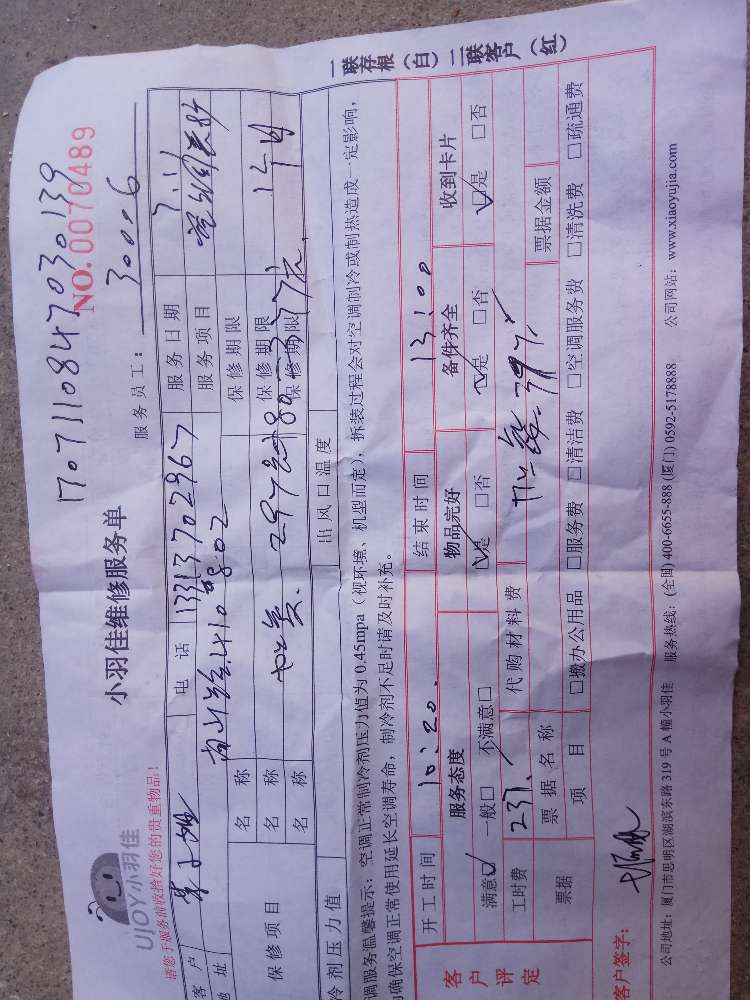 1707110847030139
NO.0070489
UJOY小羽佳
小羽佳维修服务单
服务员工：30006
请您于服务前收拾好您的贵重物品！
客户 电话 13313702967 服务日期 7.11
地址 服务项目
保修项目 名称 保修期限
名称 保修期限
名称 保修期限
冷剂压力值 出风口温度
调服务温馨提示：空调正常制冷剂压力值为 0.45mpa（视环境、机型而定），拆装过程会对空调制冷或制热造成一定影响，
确保空调正常使用延长空调寿命，制冷剂不足时请及时补充。
客户评定
开工时间 10:20. 结束时间 13:00
服务态度 物品完好 备件齐全 收到卡片
满意☑ 一般□ 不满意□ ☑是 □否 ☑是 □否 ☑是 □否
工时费 237. 代购材料费
票据 票据名称 票据金额
项目 □搬办公用品 □服务费 □清洁费 □空调服务费 □清洗费 □疏通费
客户签字：
公司地址：厦门市思明区湖滨东路 319 号 A 幢小羽佳 服务热线：(全国) 400-6655-888 (厦门) 0592-5178888 公司网站：www.xiaoyujia.com
一联存根（白）二联客户（红）